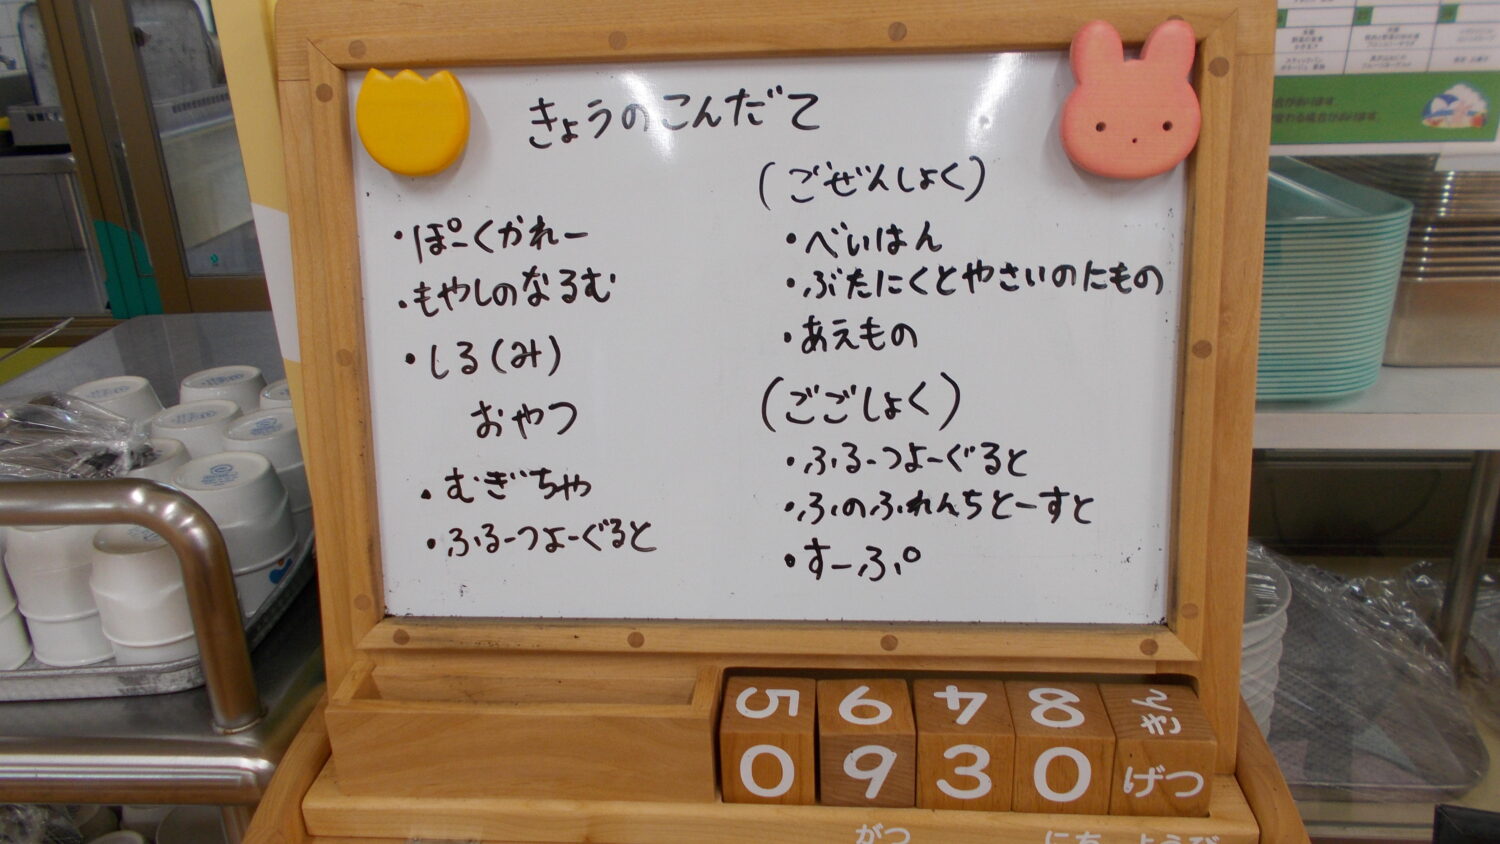 きょうのこんだて
・ぽーくかれー
・もやしのなるむ
・しる(み)
おやつ
・むぎちゃ
・ふるーつよーぐると
(ごぜんしょく)
・べいはん
・ぶたにくとやさいのにもの
・あえもの
(ごごしょく)
・ふるーつよーぐると
・ふのふれんちとーすと
・すーぷ
5 6 4 8 きん
0 9 3 0 げつ
がつ にち ようび